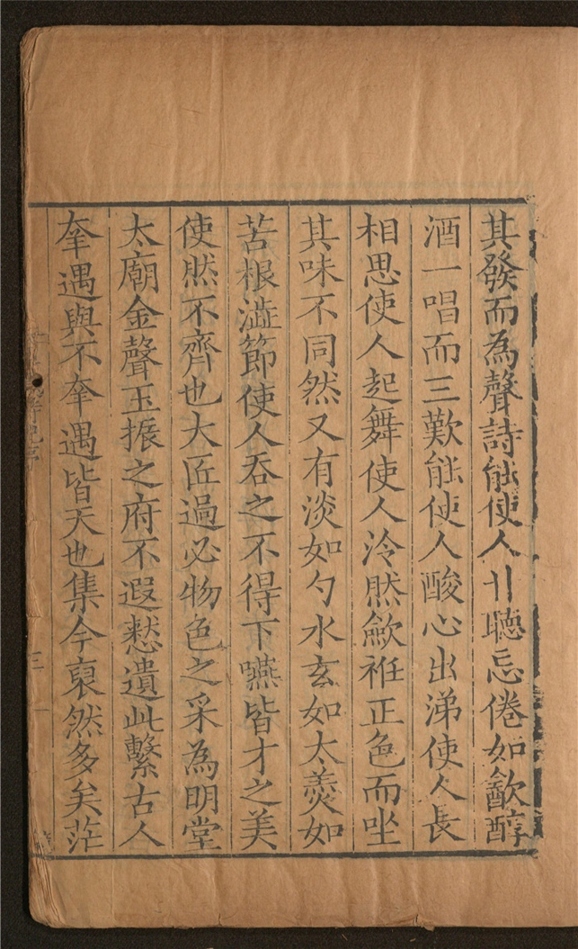 其發而為聲詩能使人丩聽忘倦如飲醇
酒一唱而三歎能使人酸心出涕使人長
相思使人起舞使人泠然歛袵正色而坐
其味不同然又有淡如勺水玄如太羹如
苦根澁節使人吞之不得下嚥皆才之美
使然不齊也大匠過必物色之采為明堂
太廟金聲玉振之府不遐愁遺此繫古人
奎遇與不奎遇皆天也集今裒然多矣茫
三